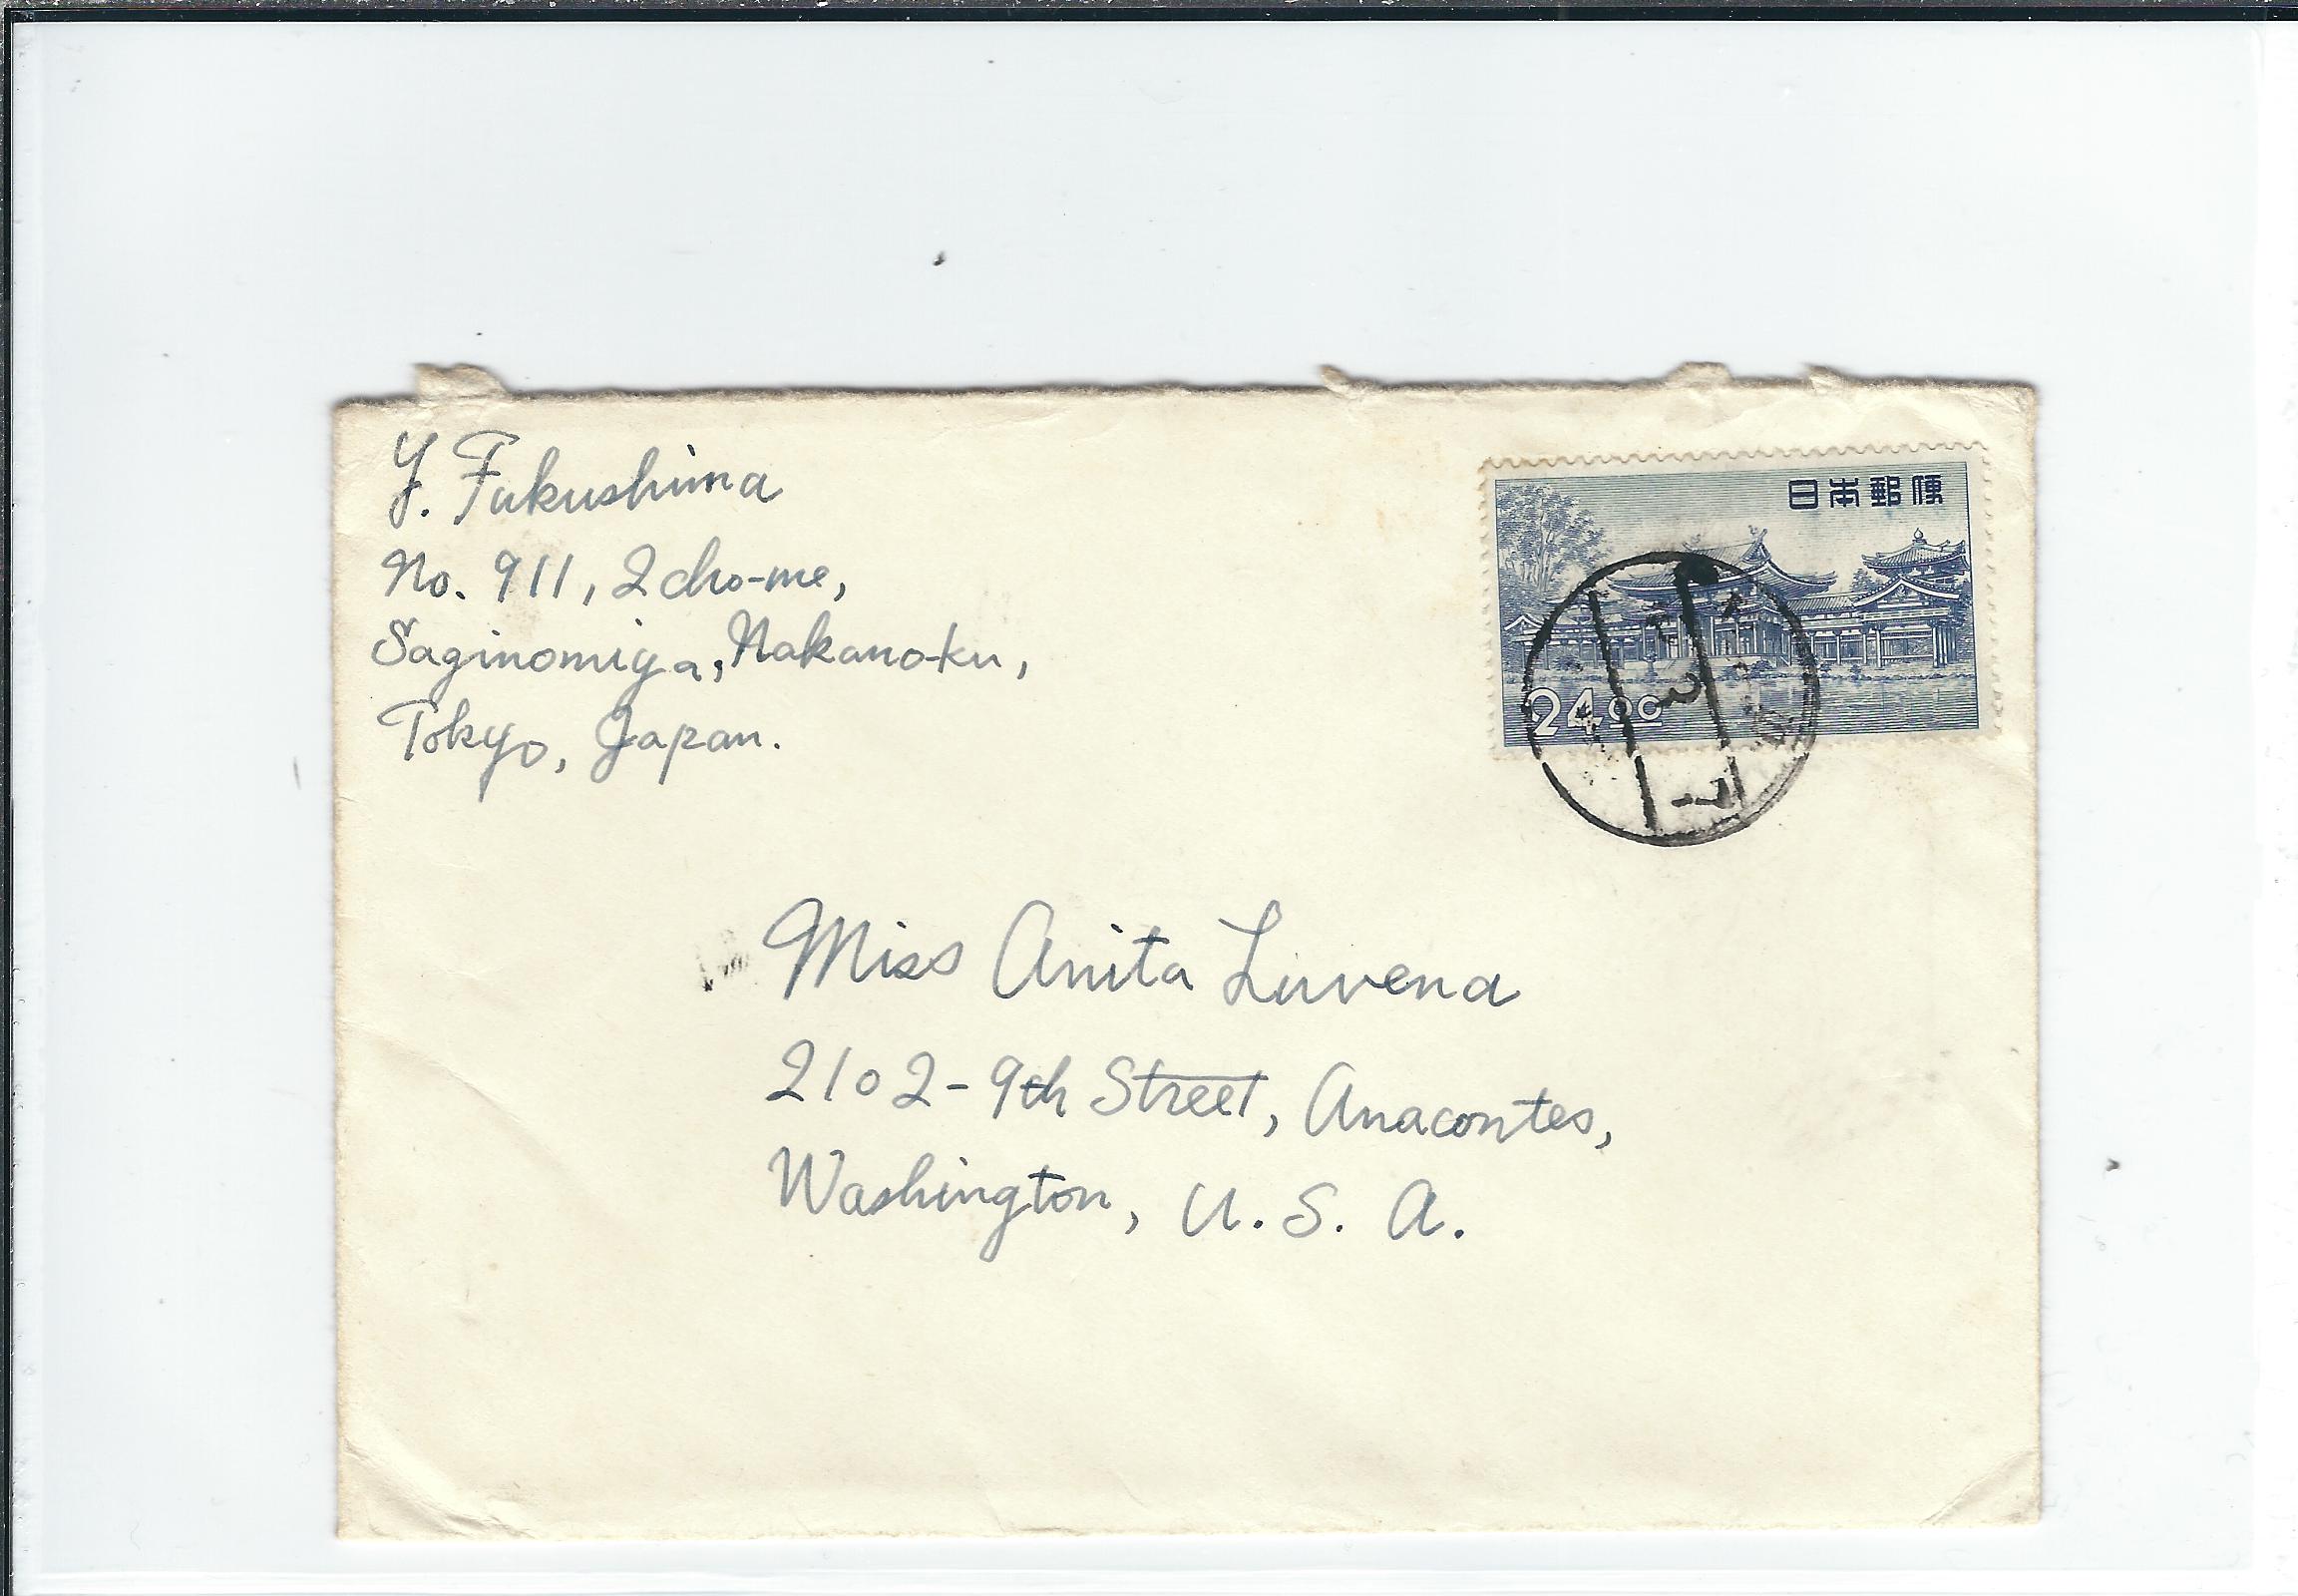 Y. Fukushima
No. 911, 2 cho-me,
Saginomiya, Nakano-ku,
Tokyo, Japan.
日本郵便
24.00
Miss Anita Luvena
2102-9th Street, Anacontes,
Washington, U. S. A.